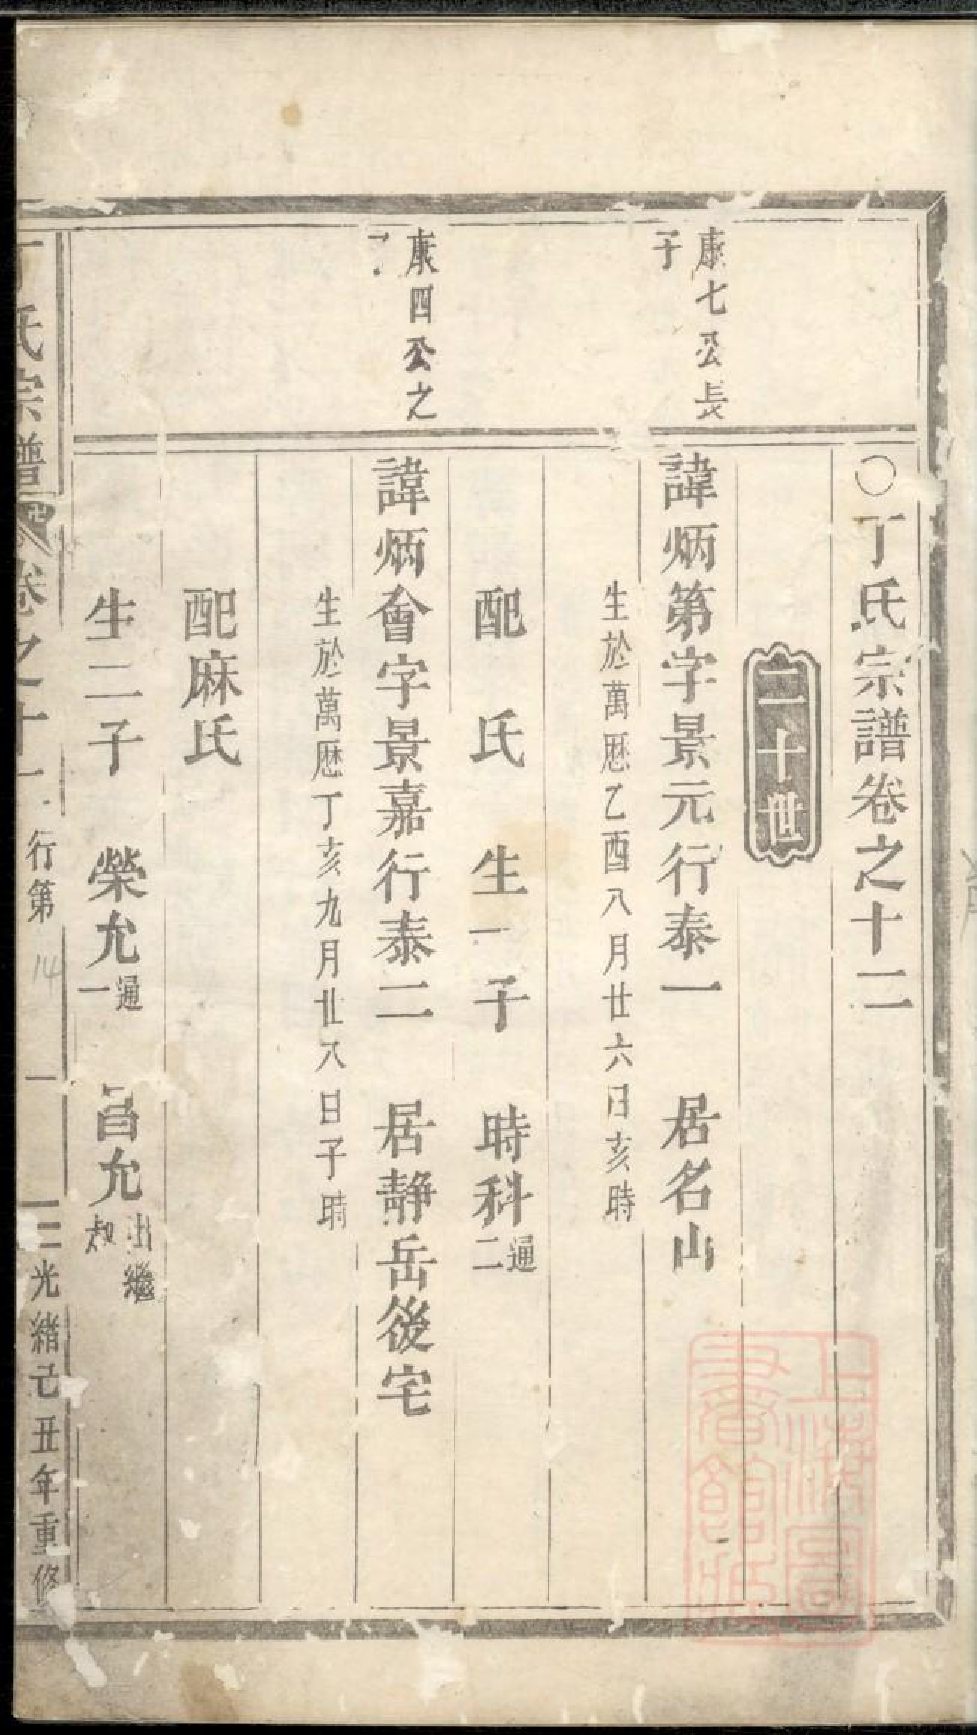 〇丁氏宗譜卷之十二
二十世
康七公長
子
諱炳第字景元行泰一 居名山
生於萬厯乙酉八月廿六日亥時
配 氏 生一子 時科通二
康四公之
子
諱炳會字景嘉行泰二 居靜岳後宅
生於萬厯丁亥九月廿八日子時
配麻氏
生二子 榮允通一 昌允出繼
丁氏宗譜 卷之十二 行第 一 光緒己丑年重修
14
上海圖
書館藏